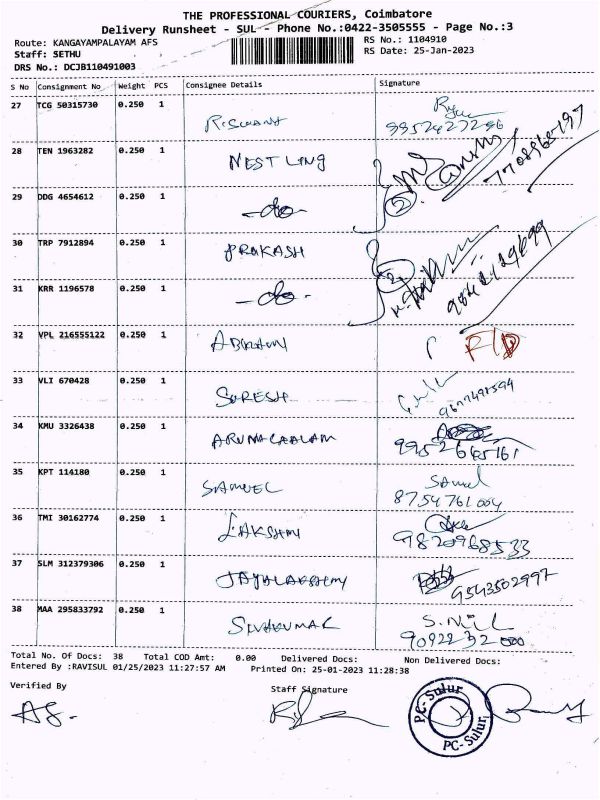 THE PROFESSIONAL COURIERS, Coimbatore
Delivery Runsheet - SUL - Phone No.:0422-3505555 - Page No.:3
Route: KANGAYAMPALAYAM AFS
Staff: SETHU
DRS No.: DCJB110491003
RS No.: 1104910
RS Date: 25-Jan-2023
S No Consignment No Weight PCS Consignee Details Signature
27 TCG 50315730 0.250 1
28 TEN 1963282 0.250 1 NESTLING
29 DDG 4654612 0.250 1 -do-
30 TRP 7912894 0.250 1 PRAKASH
31 KRR 1196578 0.250 1 -do-
32 VPL 216555122 0.250 1 ABIRAMI
33 VLI 670428 0.250 1 SURESH
34 KMU 3326438 0.250 1 ARUNACAALAM
35 KPT 114180 0.250 1 SAMUEL Samuel
8754761004
36 TMI 30162774 0.250 1 LAKSHMI
9820968533
37 SLM 312379306 0.250 1 JAYALAKSHMI 9543502997
38 MAA 295833792 0.250 1 SIVAKUMAR
Total No. Of Docs: 38 Total COD Amt: 0.00 Delivered Docs: Non Delivered Docs:
Entered By :RAVISUL 01/25/2023 11:27:57 AM Printed On: 25-01-2023 11:28:38
Verified By Staff Signature
PC-Sulur
PC-Sulur